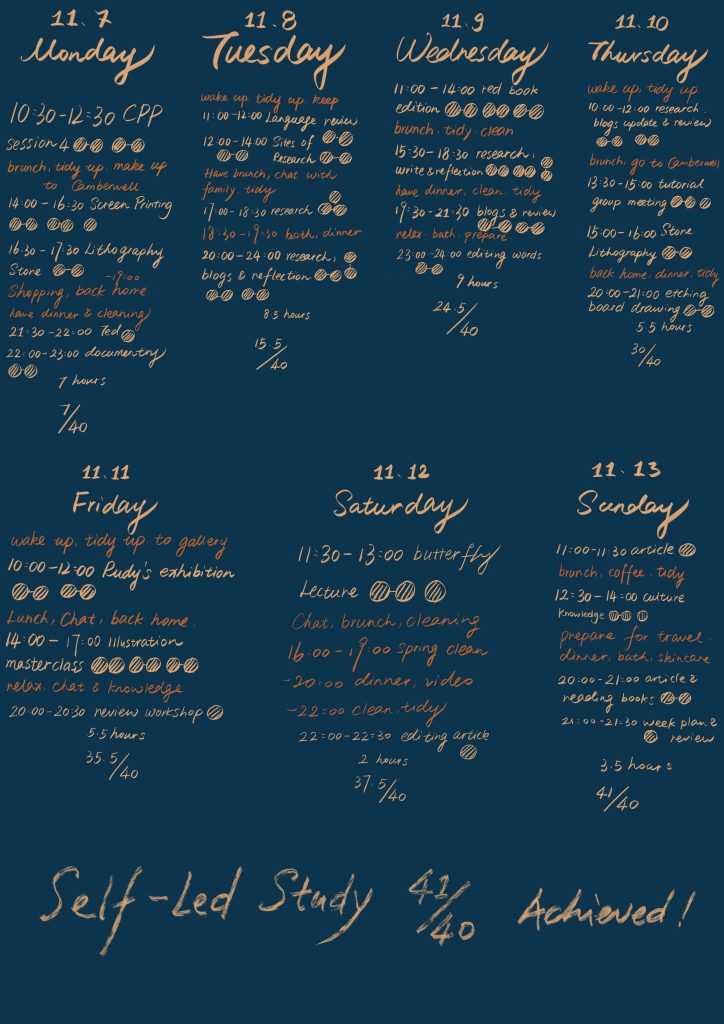 11.7
Monday
10:30-12:30 CPP
session 4
brunch, tidy up. make up
to Camberwell
14:00 - 16:30 Screen Printing
16:30 - 17:30 Lithography
Store
-19:00
Shopping, back home
have dinner & cleaning
21:30-22:00 Ted
22:00-23:00 documentry
7 hours
7/40
11.8
Tuesday
wake up. tidy up. keep
11:00-12:00 Language review
12:00-14:00 Sites of
Research
Have brunch, chat with
family. tidy
17:00 - 18:30 research
18:30-19:30 bath, dinner
20:00-24:00 research,
blogs & reflection
8.5 hours
15.5/40
11.9
Wednesday
11:00 - 14:00 red book
edition
brunch, tidy. clean
15:30 - 18:30 research,
write & reflection
have dinner, clean. tidy
19:30-21:30 blogs & review
relax. bath. prepare.
23:00-24:00 editing words
9 hours
24.5/40
11.10
Thursday
wake up, tidy up.
10:00-12:00 research.
blogs update & review
brunch, go to Camberwell
13:30-15:00 tutorial
group meeting
15:00-16:00 Store
Lithography
back home. dinner, tidy
20:00-21:00 etching
board drawing
5.5 hours
30/40
11.11
Friday
wake up, tidy up. to gallery
10:00-12:00 Rudy's exhibition
Lunch, Chat, back home.
14:00 - 17:00 Illustration
masterclass
relax. chat & knowledge
20:00-20:30 review workshop
5.5 hours
35.5/40
11.12
Saturday
11:30-13:00 butterfly
Lecture
Chat, brunch, cleaning
16:00-19:00 spring clean
-20:00 dinner, video
-22:00 clean, tidy
22:00-22:30 editing article
2 hours
37.5/40
11.13
Sunday
11:00-11:30 article
brunch, coffee. tidy
12:30 - 14:00 culture
knowledge
prepare for travel.
dinner, bath, skincare
20:00-21:00 article &
reading books
21:00-21:30 week plan &
review
3.5 hours
41/40
Self-Led Study 41/40 Achieved!